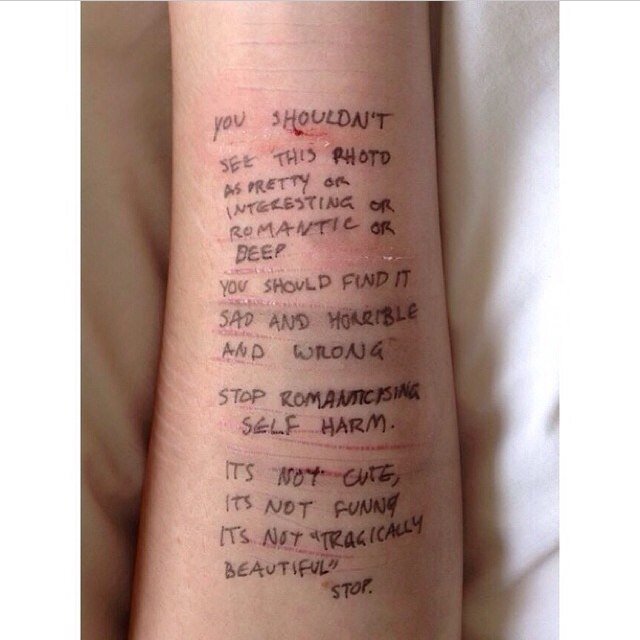 YOU SHOULDN'T
SEE THIS PHOTO
AS PRETTY OR
INTERESTING OR
ROMANTIC OR
DEEP
YOU SHOULD FIND IT
SAD AND HORRIBLE
AND WRONG
STOP ROMANTICISING
SELF HARM.
ITS NOT CUTE,
ITS NOT FUNNY
ITS NOT "TRAGICALLY
BEAUTIFUL"
STOP.